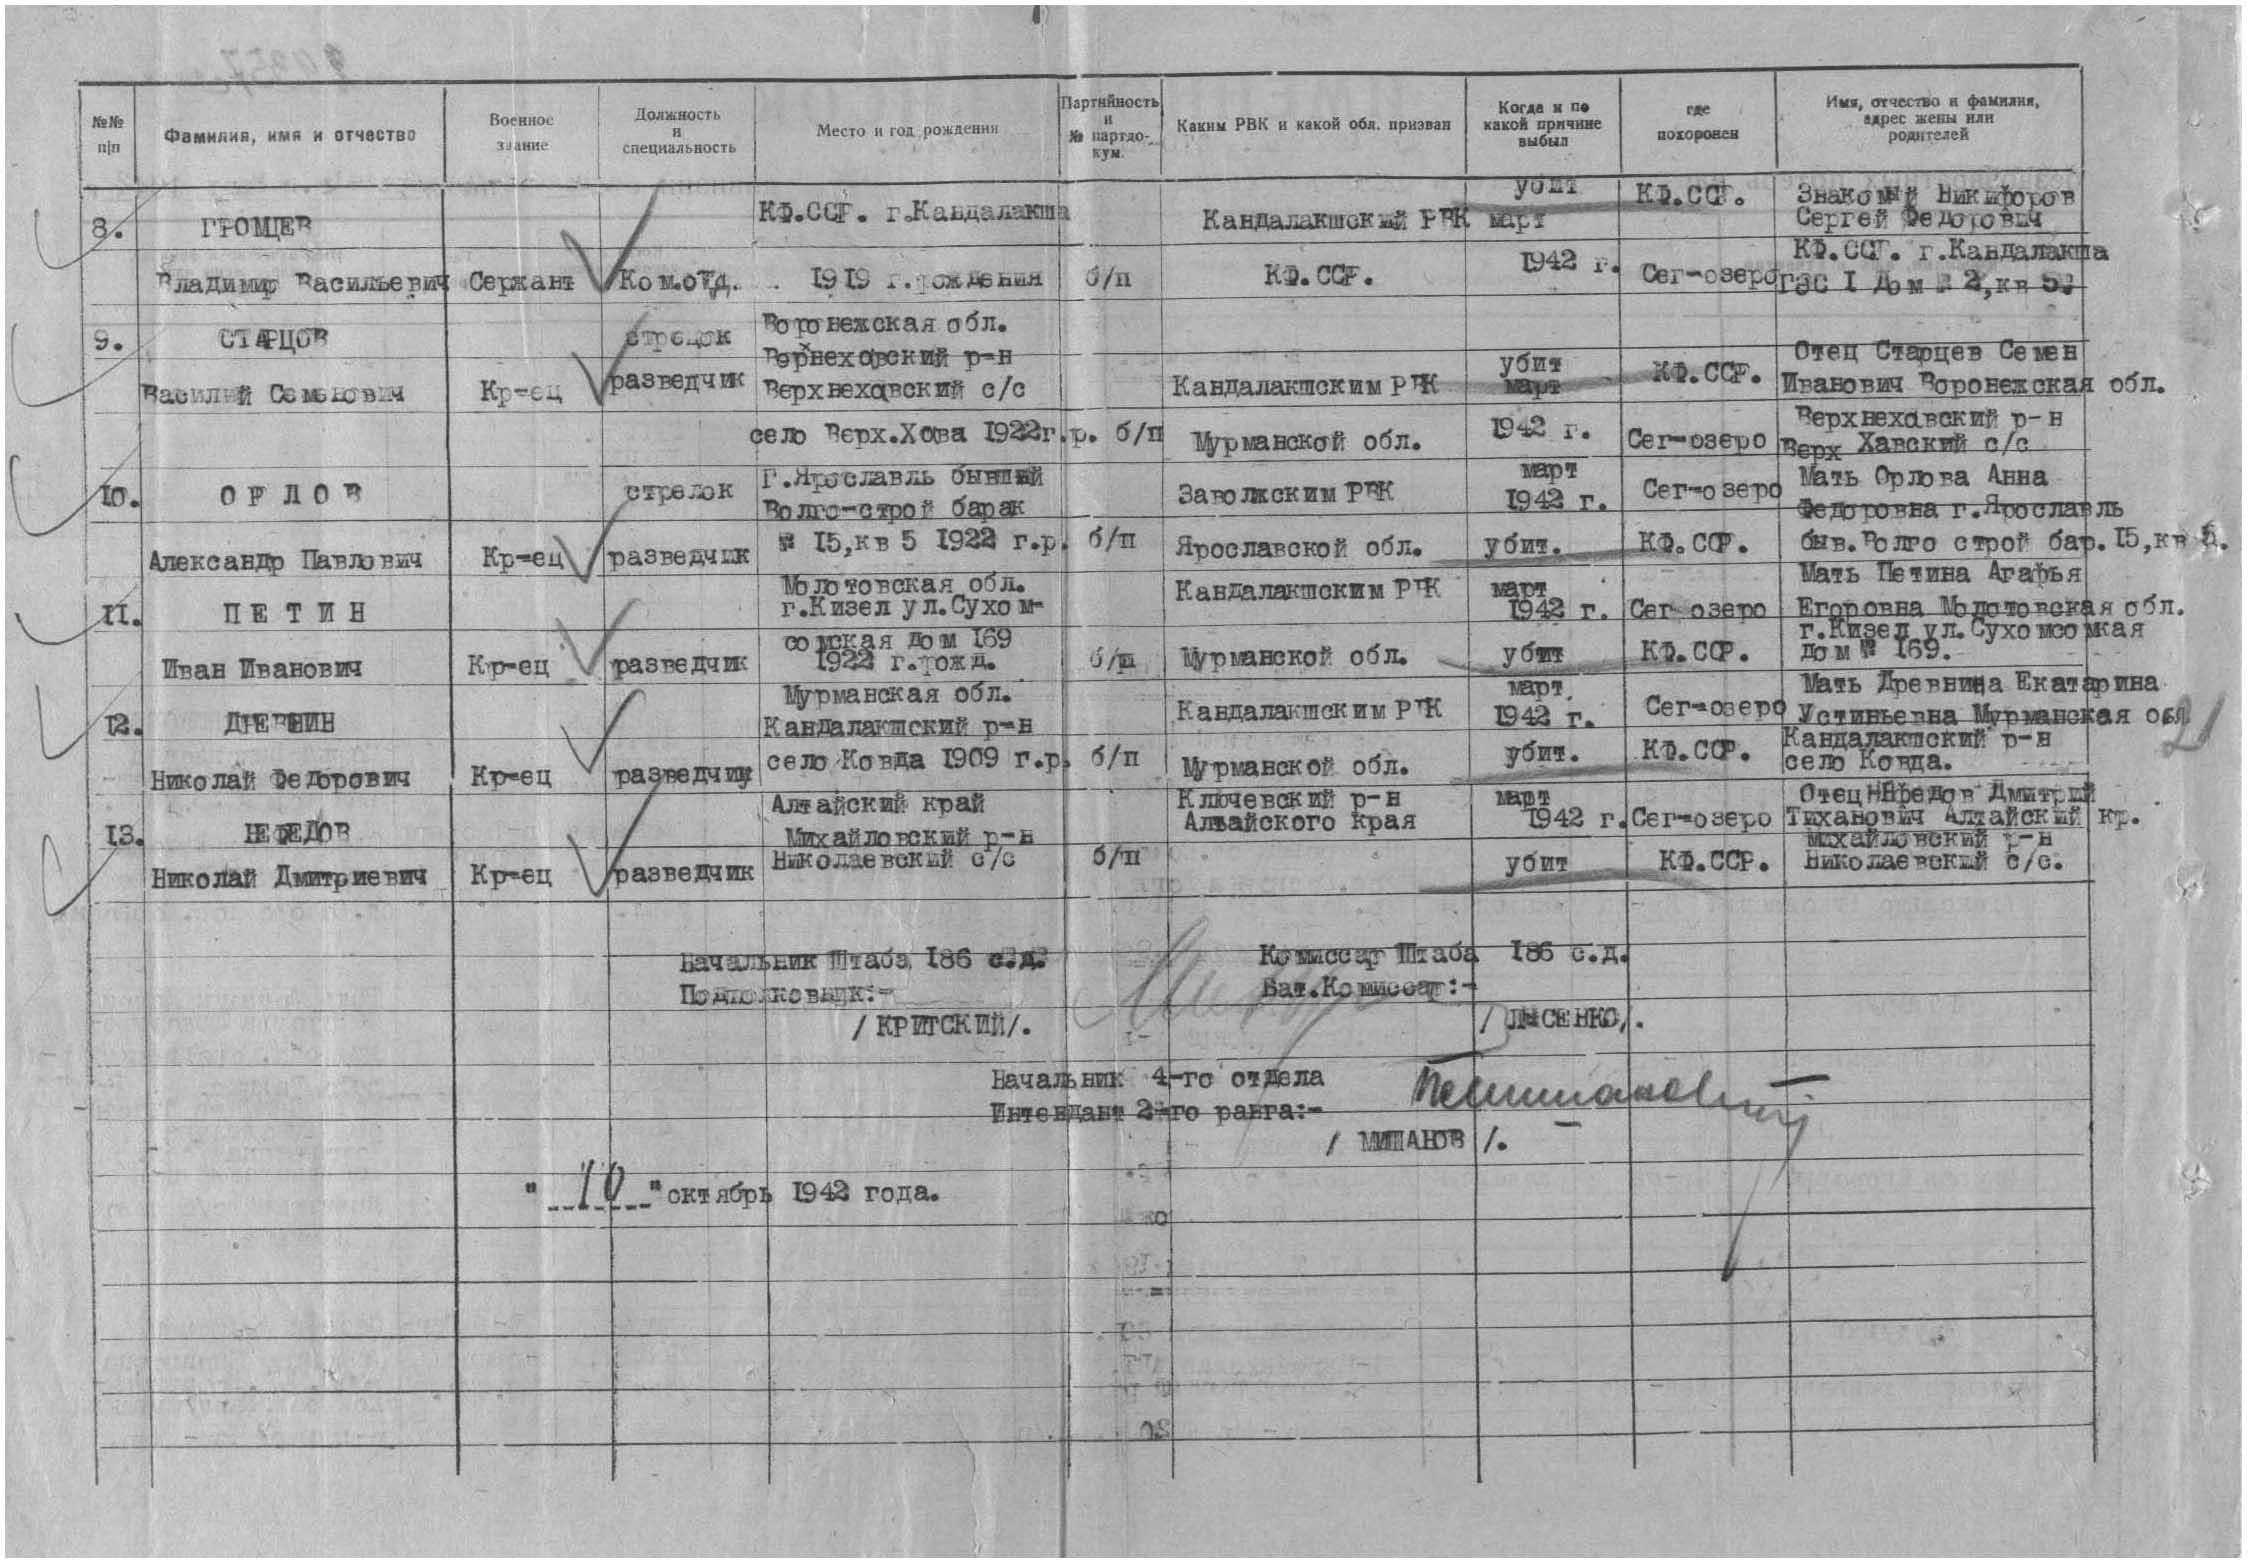 №№ п|п
Фамилия, имя и отчество
Военное звание
Должность и специальность
Место и год рождения
Партийность и № партдо- кум.
Каким РВК и какой обл. призван
Когда и по какой причине выбыл
где похоронен
Имя, отчество и фамилия, адрес жены или родителей
8. ГРОМЦЕВ
Владимир Васильевич
Сержант
Ком.отд.
КФ.ССР. г.Кандалакша
1919 г.рождения
б/п
Кандалакшский РВК
КФ.ССР.
убит
март
1942 г.
КФ.ССР.
Сег-озеро
Знакомый Никифоров
Сергей Федорович
КФ.ССР. г.Кандалакша
ГЭС I Дом № 2,кв 5.
9. СТАРЦОВ
Василий Семенович
Кр-ец
стрелок
разведчик
Воронежская обл.
Верхнеховский р-н
Верхнехавский с/с
село Верх.Хова 1922г.р.
б/п
Кандалакшским РВК
Мурманской обл.
убит
март
1942 г.
КФ.ССР.
Сег-озеро
Отец Старцев Семен
Иванович Воронежская обл.
Верхнеховский р-н
Верх Хавский с/с
10. ОРЛОВ
Александр Павлович
Кр-ец
стрелок
разведчик
Г.Ярославль бывший
Волго-строй барак
№ 15,кв 5 1922 г.р.
б/п
Заволжским РВК
Ярославской обл.
март
1942 г.
убит.
Сег-озеро
КФ.ССР.
Мать Орлова Анна
Федоровна г.Ярославль
быв.Волго строй бар.15,кв 5.
11. ПЕТИН
Иван Иванович
Кр-ец
разведчик
Молотовская обл.
г.Кизел ул.Сухом-
сомская дом 169
1922 г.рожд.
б/п
Кандалакшским РВК
Мурманской обл.
март
1942 г.
убит
Сег-озеро
КФ.ССР.
Мать Петина Агафья
Егоровна Молотовская обл.
г.Кизел ул.Сухомсомкая
дом № 169.
12. ДРЕВНИН
Николай Федорович
Кр-ец
разведчик
Мурманская обл.
Кандалакшский р-н
село Ковда 1909 г.р.
б/п
Кандалакшским РВК
Мурманской обл.
март
1942 г.
убит.
Сег-озеро
КФ.ССР.
Мать Древнина Екатарина
Устиньевна Мурманская обл
Кандалакшский р-н
село Ковда.
21
13. НЕФЕДОВ
Николай Дмитриевич
Кр-ец
разведчик
Алтайский край
Михайловский р-н
Николаевский с/с
б/п
Ключевский р-н
Алтайского края
март
1942 г.
убит
Сег-озеро
КФ.ССР.
Отец Нефедов Дмитрий
Тиханович Алтайский кр.
Михайловский р-н
Николаевский с/с.
Начальник Штаба 186 с.д.
Подполковник:-
/КРИТСКИЙ/.
Комиссар Штаба 186 с.д.
Бат.Комиссар:-
/ЛЫСЕНКО/.
Начальник 4-го отдела
Интендант 2-го ранга:-
/ МИШАНОВ /.
"10" октябрь 1942 года.